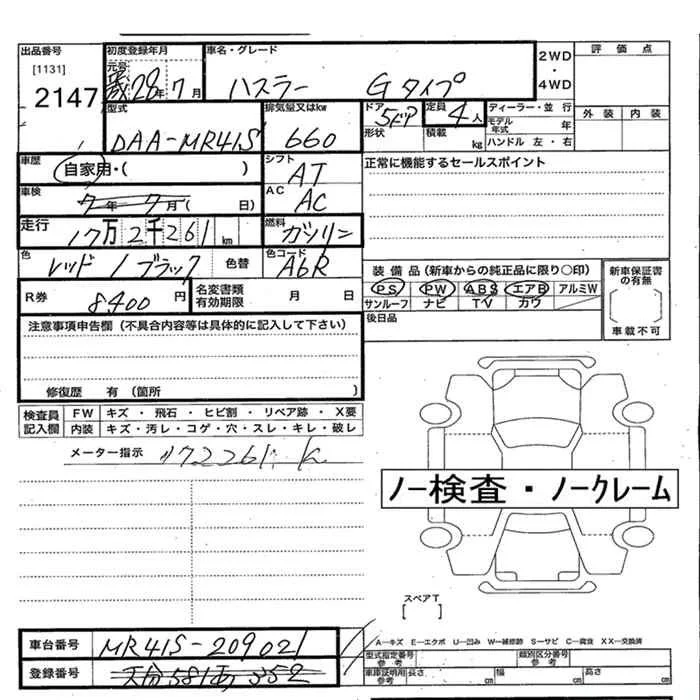 出品番号
[1131]
2147
初度登録年月
元号
28年7月
車名・グレード
ハスラー Gタイプ
2WD
・
4WD
評価点
外装 内装
型式
DAA-MR41S
排気量又はkw
660
ドア
5ドア
形状
定員
4人
積載
kg
ディーラー・並行
モデル年式 年
ハンドル 左・右
車歴
自家用・( )
シフト
AT
正常に機能するセールスポイント
車検
7年7月( 日)
AC
AC
走行
17万2千261km
燃料
ガソリン
色
レッド/ブラック 色替
色コード
A6R
装備品(新車からの純正品に限り〇印)
PS PW ABS エアB アルミW
サンルーフ ナビ TV カワ
新車保証書の有無
車載不可
R券 8400円
名変書類有効期限 月 日
後日品
注意事項申告欄(不具合内容等は具体的に記入して下さい)
修復歴 有(箇所 )
検査員記入欄
FW キズ・飛石・ヒビ割・リペア跡・X要
内装 キズ・汚レ・コゲ・穴・スレ・キレ・破レ
メーター指示 172261k
ノー検査・ノークレーム
スペアT
[ ]
A―キズ E―エクボ U―凹み W―補修跡 S―サビ C―腐食 XX―交換済
車台番号 MR41S-209021
登録番号
型式指定番号
参考
類別区分番号
参考
車庫証明用
参考
長さ cm 幅 cm 高さ cm